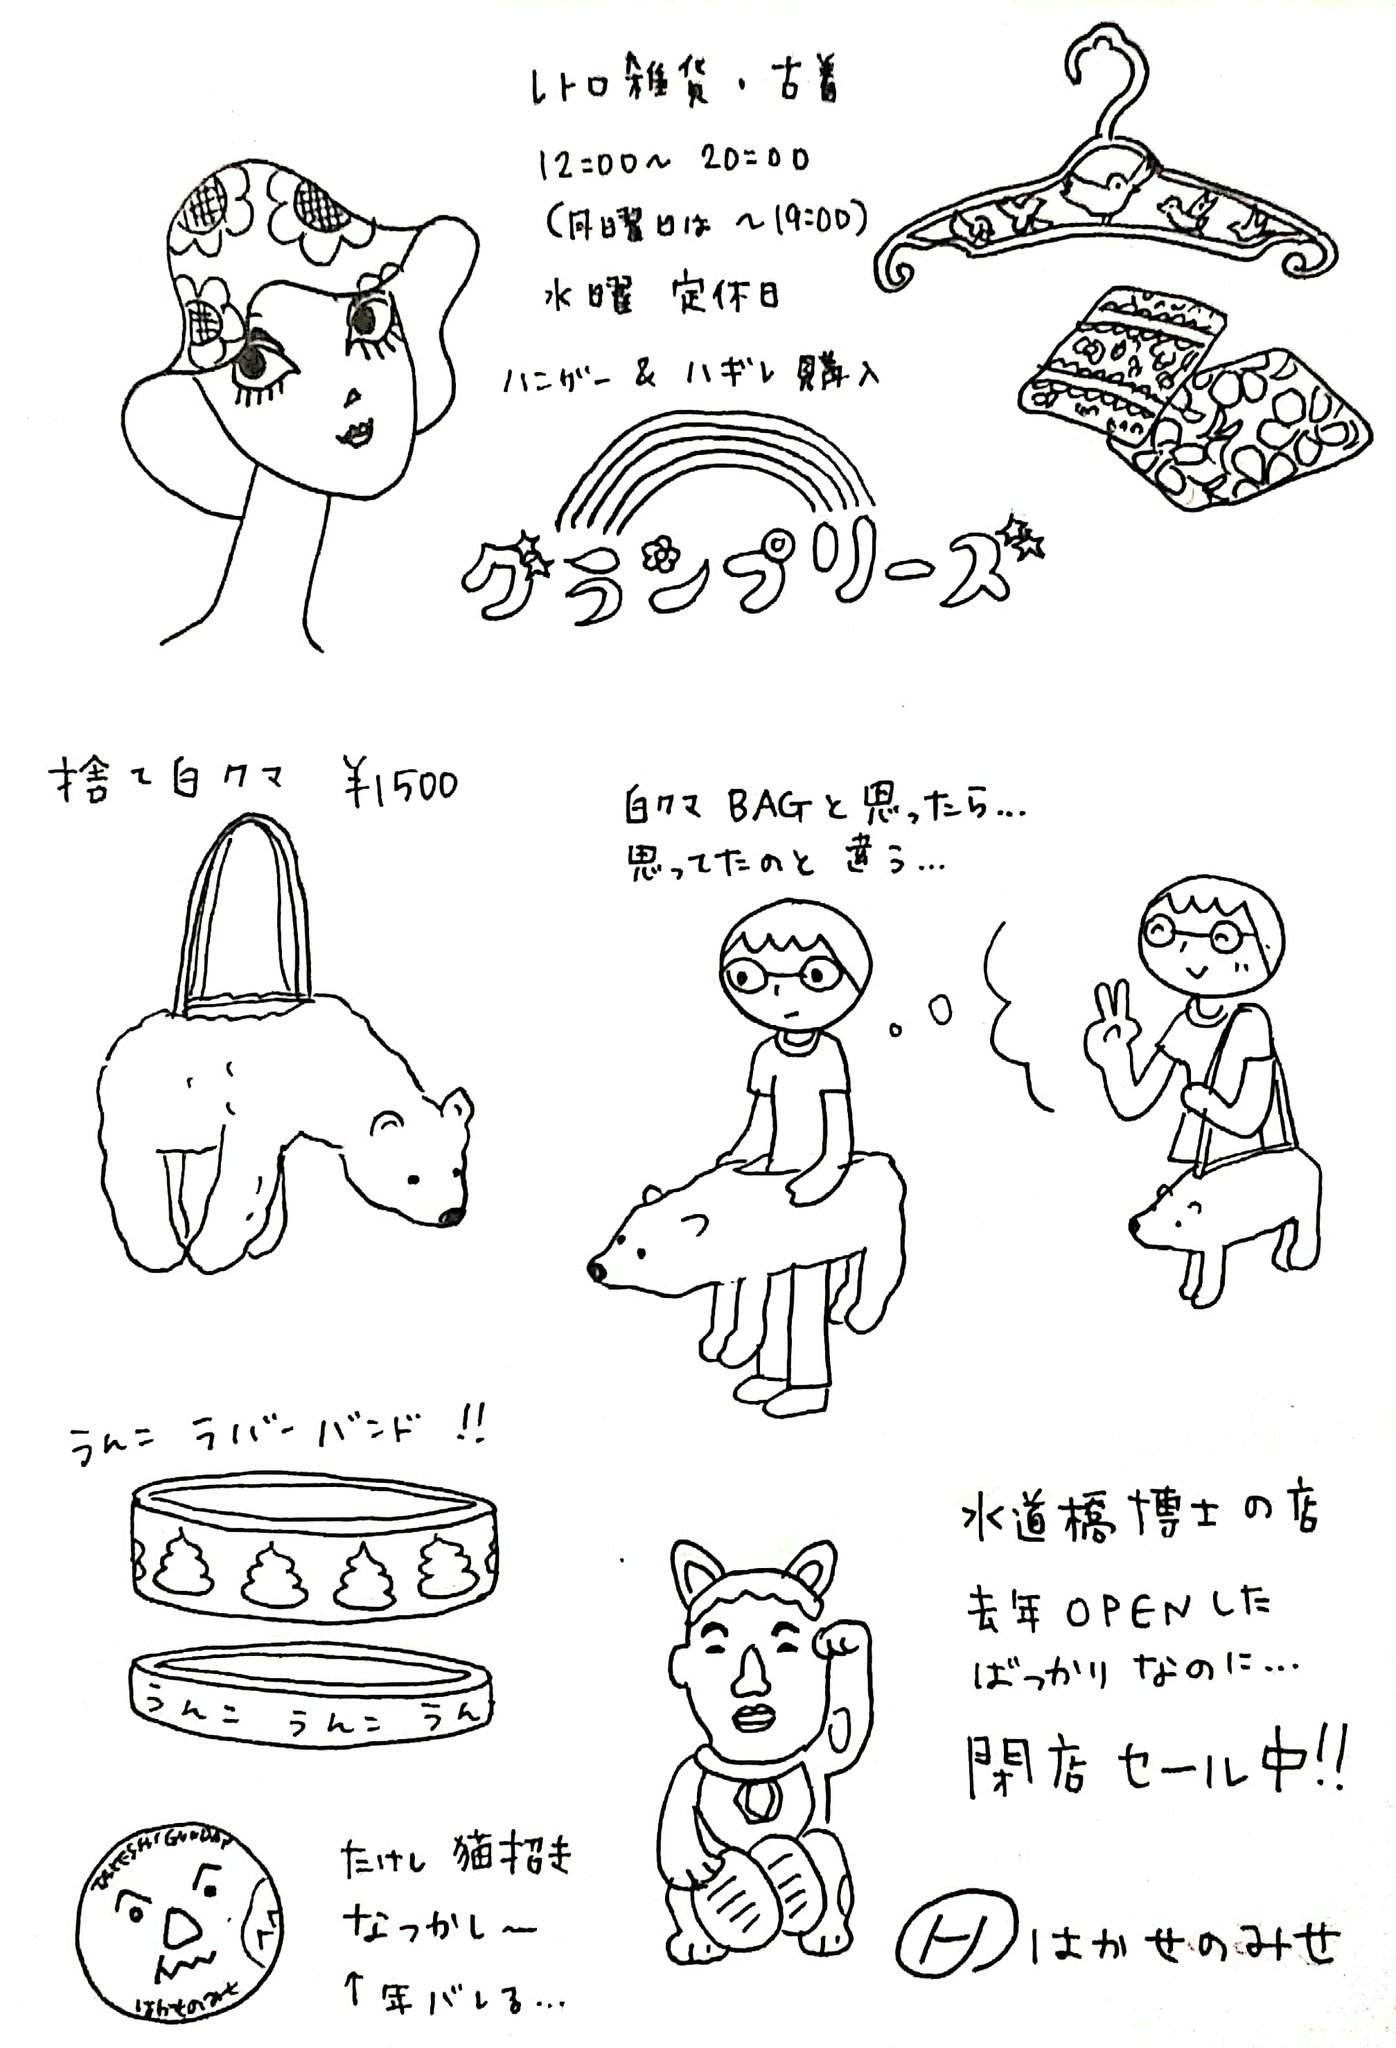 レトロ雑貨・古着
12:00〜20:00
(月曜日は 〜19:00)
水曜 定休日
ハンガー & ハギレ 購入
グランプリーズ
捨て白クマ ¥1500
白クマ BAGと思ったら…
思ってたのと違う…
うんこ ラバーバンド!!
うんこ うんこ うん
水道橋博士の店
去年OPENした
ばっかりなのに…
閉店セール中!!
たけし猫招き
なつかし〜
↑年バレる…
TAKESHI GUNDAN
はかせのみせ
H はかせのみせ